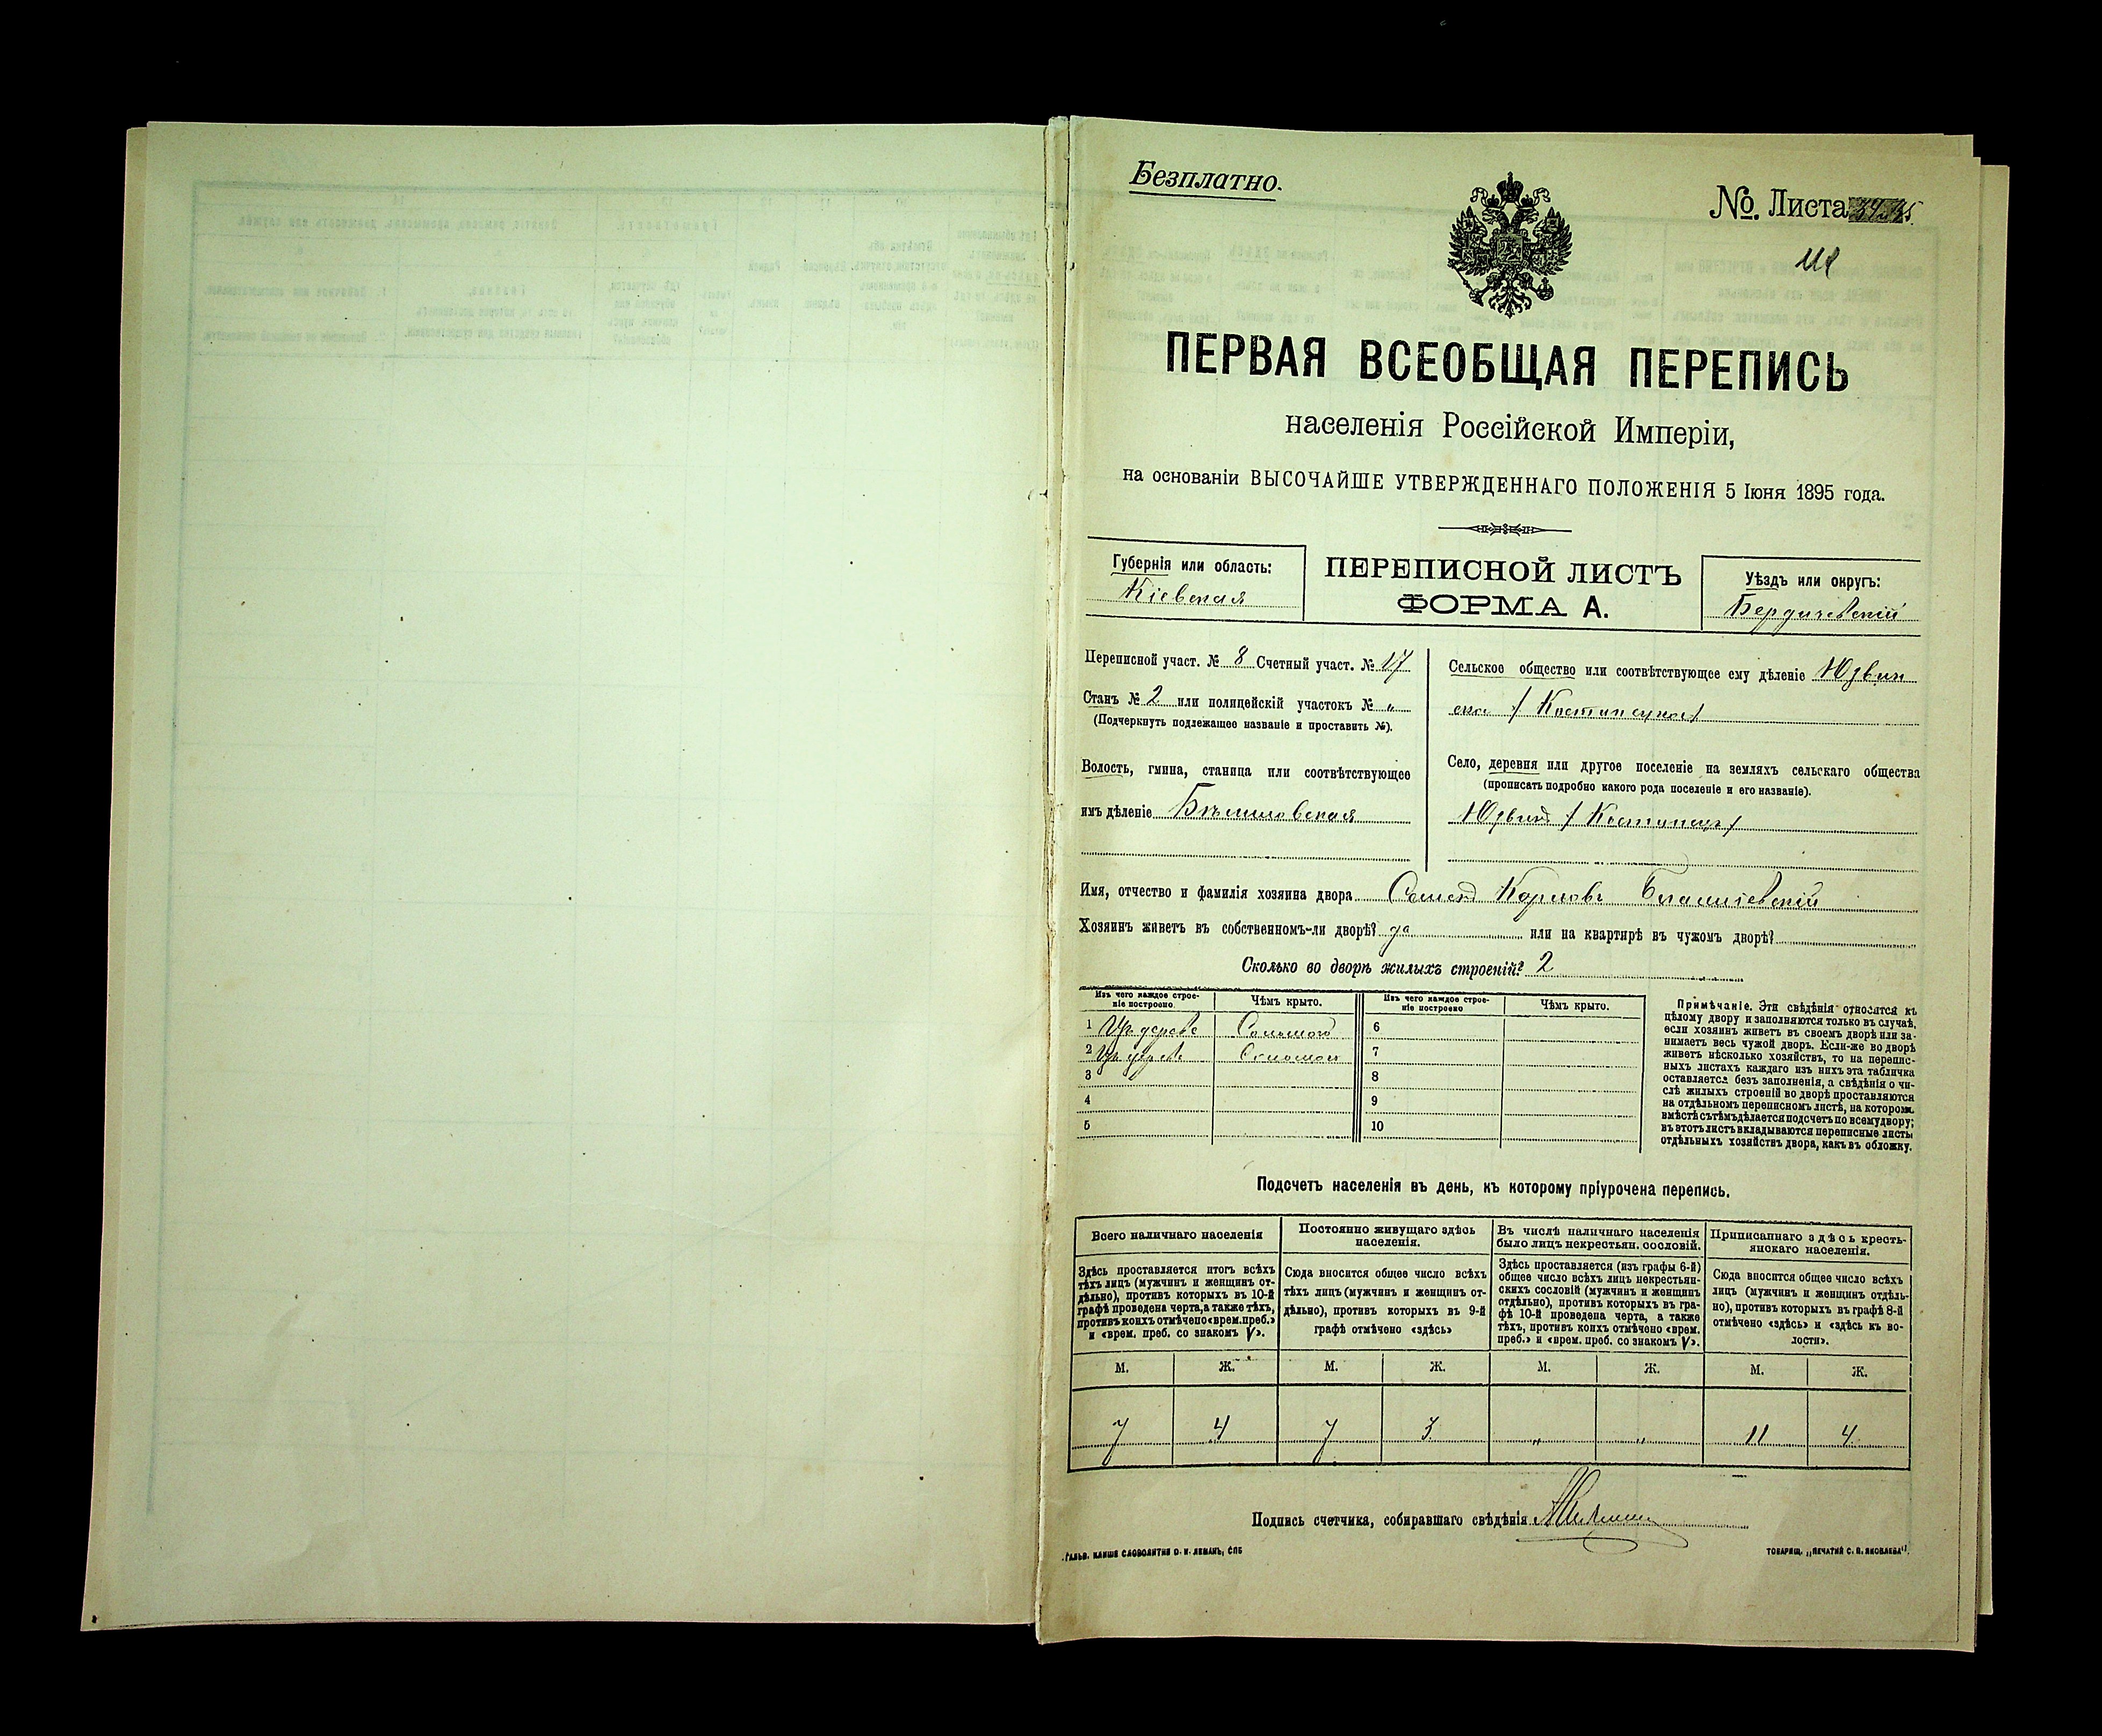 Безплатно.
№. Листа
ПЕРВАЯ ВСЕОБЩАЯ ПЕРЕПИСЬ
населенія Россійской Имперіи,
на основаніи ВЫСОЧАЙШЕ УТВЕРЖДЕННАГО ПОЛОЖЕНІЯ 5 Іюня 1895 года.
Губернія или область:
Кіевская
ПЕРЕПИСНОЙ ЛИСТЪ
ФОРМА А.
Уѣздъ или округъ:
Бердичевскій
Переписной участ. № 8 Счетный участ. № 17
Станъ № 2 или полицейскій участокъ № „
(Подчеркнуть подлежащее названіе и проставить №).
Волость, гмина, станица или соотвѣтствующее
имъ дѣленіе
Сельское общество или соотвѣтствующее ему дѣленіе
Село, деревня или другое поселеніе на земляхъ сельскаго общества
(прописать подробно какого рода поселеніе и его названіе).
Имя, отчество и фамилія хозяина двора Карловъ
Хозяинъ живетъ въ собственномъ-ли дворѣ? да или на квартирѣ въ чужомъ дворѣ?
Сколько во дворѣ жилыхъ строеній? 2
Изъ чего каждое строе-
ніе построено.
Чѣмъ крыто.
Изъ чего каждое строе-
ніе построено
Чѣмъ крыто.
1 Изъ дерева Соломою 6
2 Изъ дерева Соломою 7
3 8
4 9
5 10
Примѣчаніе. Эти свѣдѣнія относятся къ
цѣлому двору и заполняются только въ случаѣ,
если хозяинъ живетъ въ своемъ дворѣ или за-
нимаетъ весь чужой дворъ. Если-же во дворѣ
живетъ нѣсколько хозяйствъ, то на перепис-
ныхъ листахъ каждаго изъ нихъ эта табличка
оставляется безъ заполненія, а свѣдѣнія о чи-
слѣ жилыхъ строеній во дворѣ проставляются
на отдѣльномъ переписномъ листѣ, на которомъ
вмѣстѣ съ тѣмъ дѣлается подсчетъ по всему двору;
въ этотъ листъ вкладываются переписные листы
отдѣльныхъ хозяйствъ двора, какъ въ обложку.
Подсчетъ населенія въ день, къ которому пріурочена перепись.
Всего наличнаго населенія
Здѣсь проставляется итогъ всѣхъ
тѣхъ лицъ (мужчинъ и женщинъ от-
дѣльно), противъ которыхъ въ 10-й
графѣ проведена черта, а также тѣхъ,
противъ коихъ отмѣчено «врем. преб.»
и «врем. преб. со знакомъ V».
Постоянно живущаго здѣсь
населенія.
Сюда вносится общее число всѣхъ
тѣхъ лицъ (мужчинъ и женщинъ от-
дѣльно), противъ которыхъ въ 9-й
графѣ отмѣчено «здѣсь»
Въ числѣ наличнаго населенія
было лицъ некрестьян. сословій.
Здѣсь проставляется (изъ графы 6-й)
общее число всѣхъ лицъ некрестьян-
скихъ сословій (мужчинъ и женщинъ
отдѣльно), противъ которыхъ въ гра-
фѣ 10-й проведена черта, а также
тѣхъ, противъ коихъ отмѣчено «врем.
преб.» и «врем. преб. со знакомъ V».
Приписаннаго здѣсь кресть-
янскаго населенія.
Сюда вносится общее число всѣхъ
лицъ (мужчинъ и женщинъ отдѣль-
но), противъ которыхъ въ графѣ 8-й
отмѣчено «здѣсь» и «здѣсь къ во-
лости».
М. Ж. М. Ж. М. Ж. М. Ж.
7 4 7 3 „ „ 11 4
Подпись счетчика, собиравшаго свѣдѣнія
ГАЛЬВ. КЛИШЕ СЛОВОЛИТНИ О. И. ЛЕМАНЪ, СПБ
ТОВАРИЩ. „ПЕЧАТНЯ С. П. ЯКОВЛЕВА“.